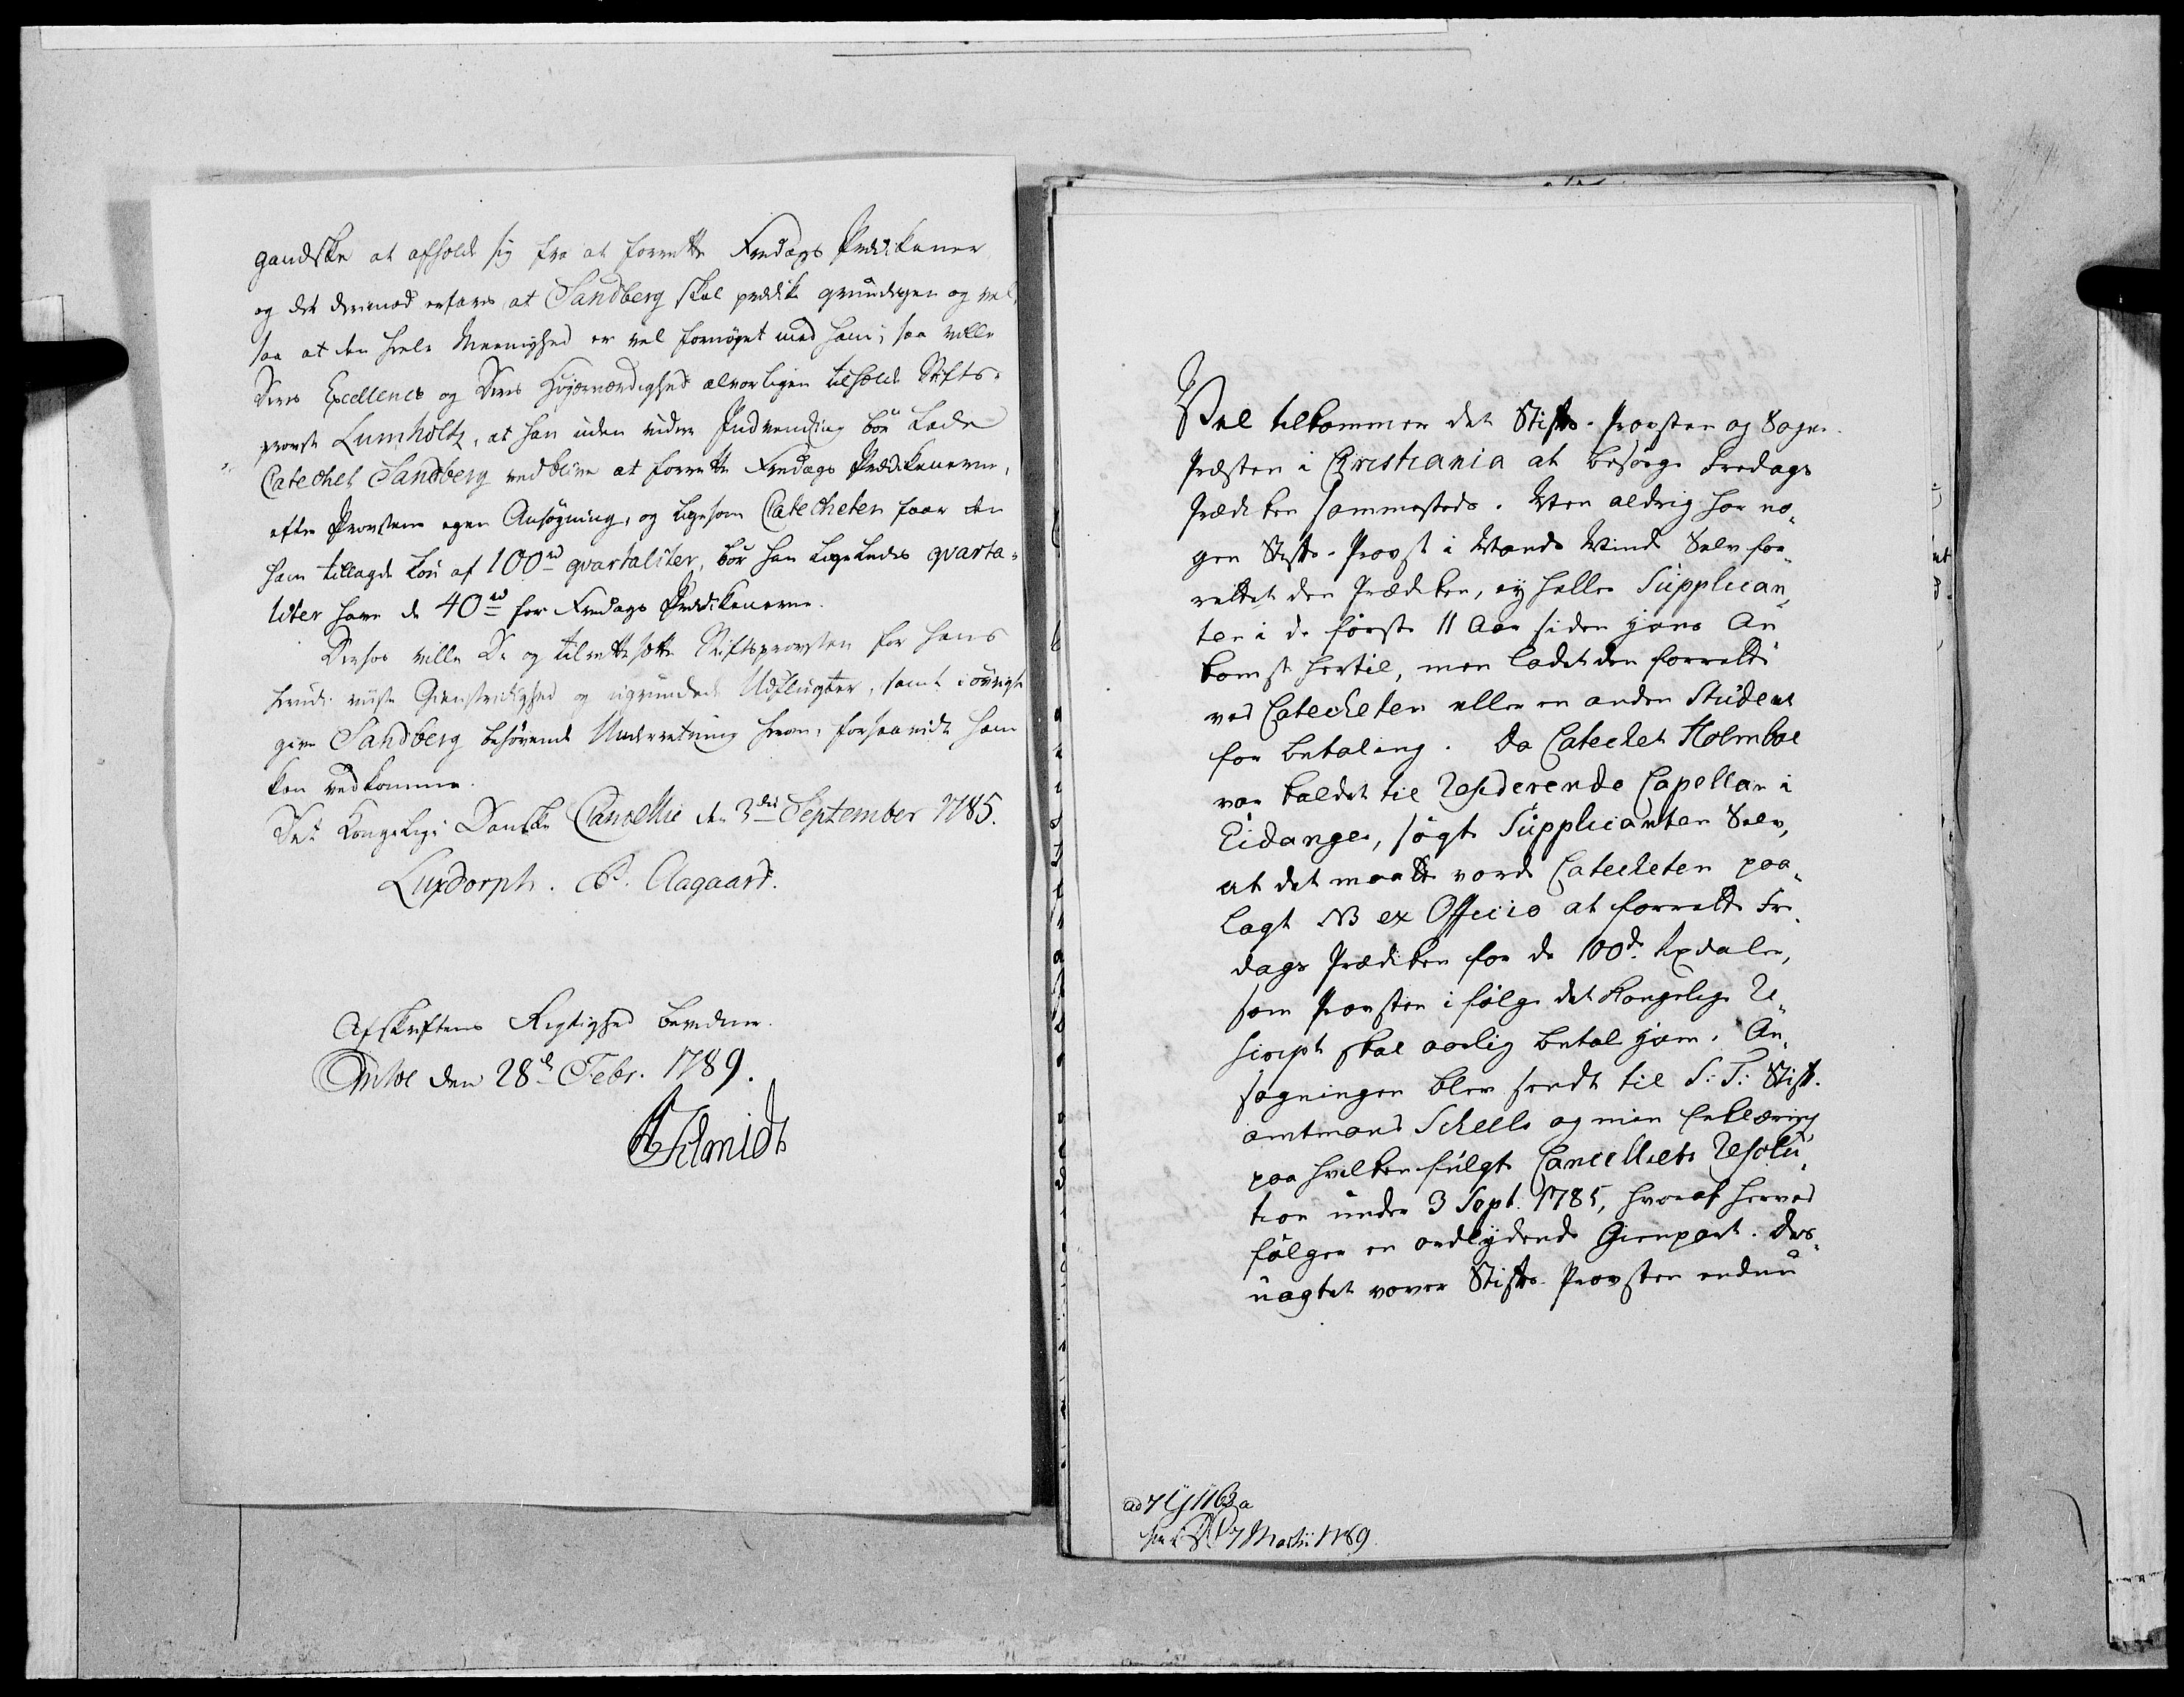 gandske at afholde sig fra at forrette Fredags Prædikener
og det derimod erfares, at Sandberg skal prædike grundigen og vel,
saa at den heele Meenighed er vel fornøyet med ham; saa ville
Deres Excellence og Deres Høyærværdighed alvorligen tilholde Stifts-
provst Lumholtz, at han uden videre Indvending bør lade
Catechet Sandberg vedblive at forrette Fredags Prædikenerne,
efter Provstens egen Ansøgning, og ligesom Catecheten faar den
ham tillagde Løn af 100 rd qvartaliter, bør han ligeledes qvarta-
liter have de 40 rd for Fredags Prædikenerne.
Derhos ville De og tilrettesætte Stiftsprovsten for hans
herudi viiste Gienstridighed og ugrundede Udflugter, samt i øvrigt
give Sandberg behøvende Underretning herom, forsaavidt ham
kan vedkomme.
Det Kongelige Danske Cancellie den 3die September 1785.
Luxdorph. A. Aagaard.
Afskriftens Rigtighed bevidner.
den 28de Febr. 1789.
Schmidt
Vel tilkommer det Stifts-Provsten og Sogne-
Præsten i Christiania at besørge Fredags
Prædiken sammesteds. Men aldrig har no-
gen Stifts-Provst i Mands Minde Selv for-
rettet den Prædiken, ey heller Supplican-
ten i de første 11 Aar siden hans An-
komst hertil, men ladet den forrette
ved Catecheten eller en anden Student
for betaling. Da Catechet Holmboe
var kaldet til Residerende Capellan i
Eidanger, søgte Supplicanten Selv,
at det maatte vorde Catecheten paa-
lagt NB ex Officio at forrette Fre-
dags Prædiken for de 100de Rixdaler,
som Provsten i følge det Kongelige Re-
script skal aarlig betale ham. An-
søgningen blev sendt til S: T: Stift-
amtmand Schells og min Erklæring
paa hvilken fulgte Cancelliets Resolu-
tion under 3 Sept. 1785, hvoraf herved
følger en ordlydende Gienpart. Des-
uagtet vover Stifts-Provsten endnu
ad 7 Y 1162 a
7 Martii 1789.